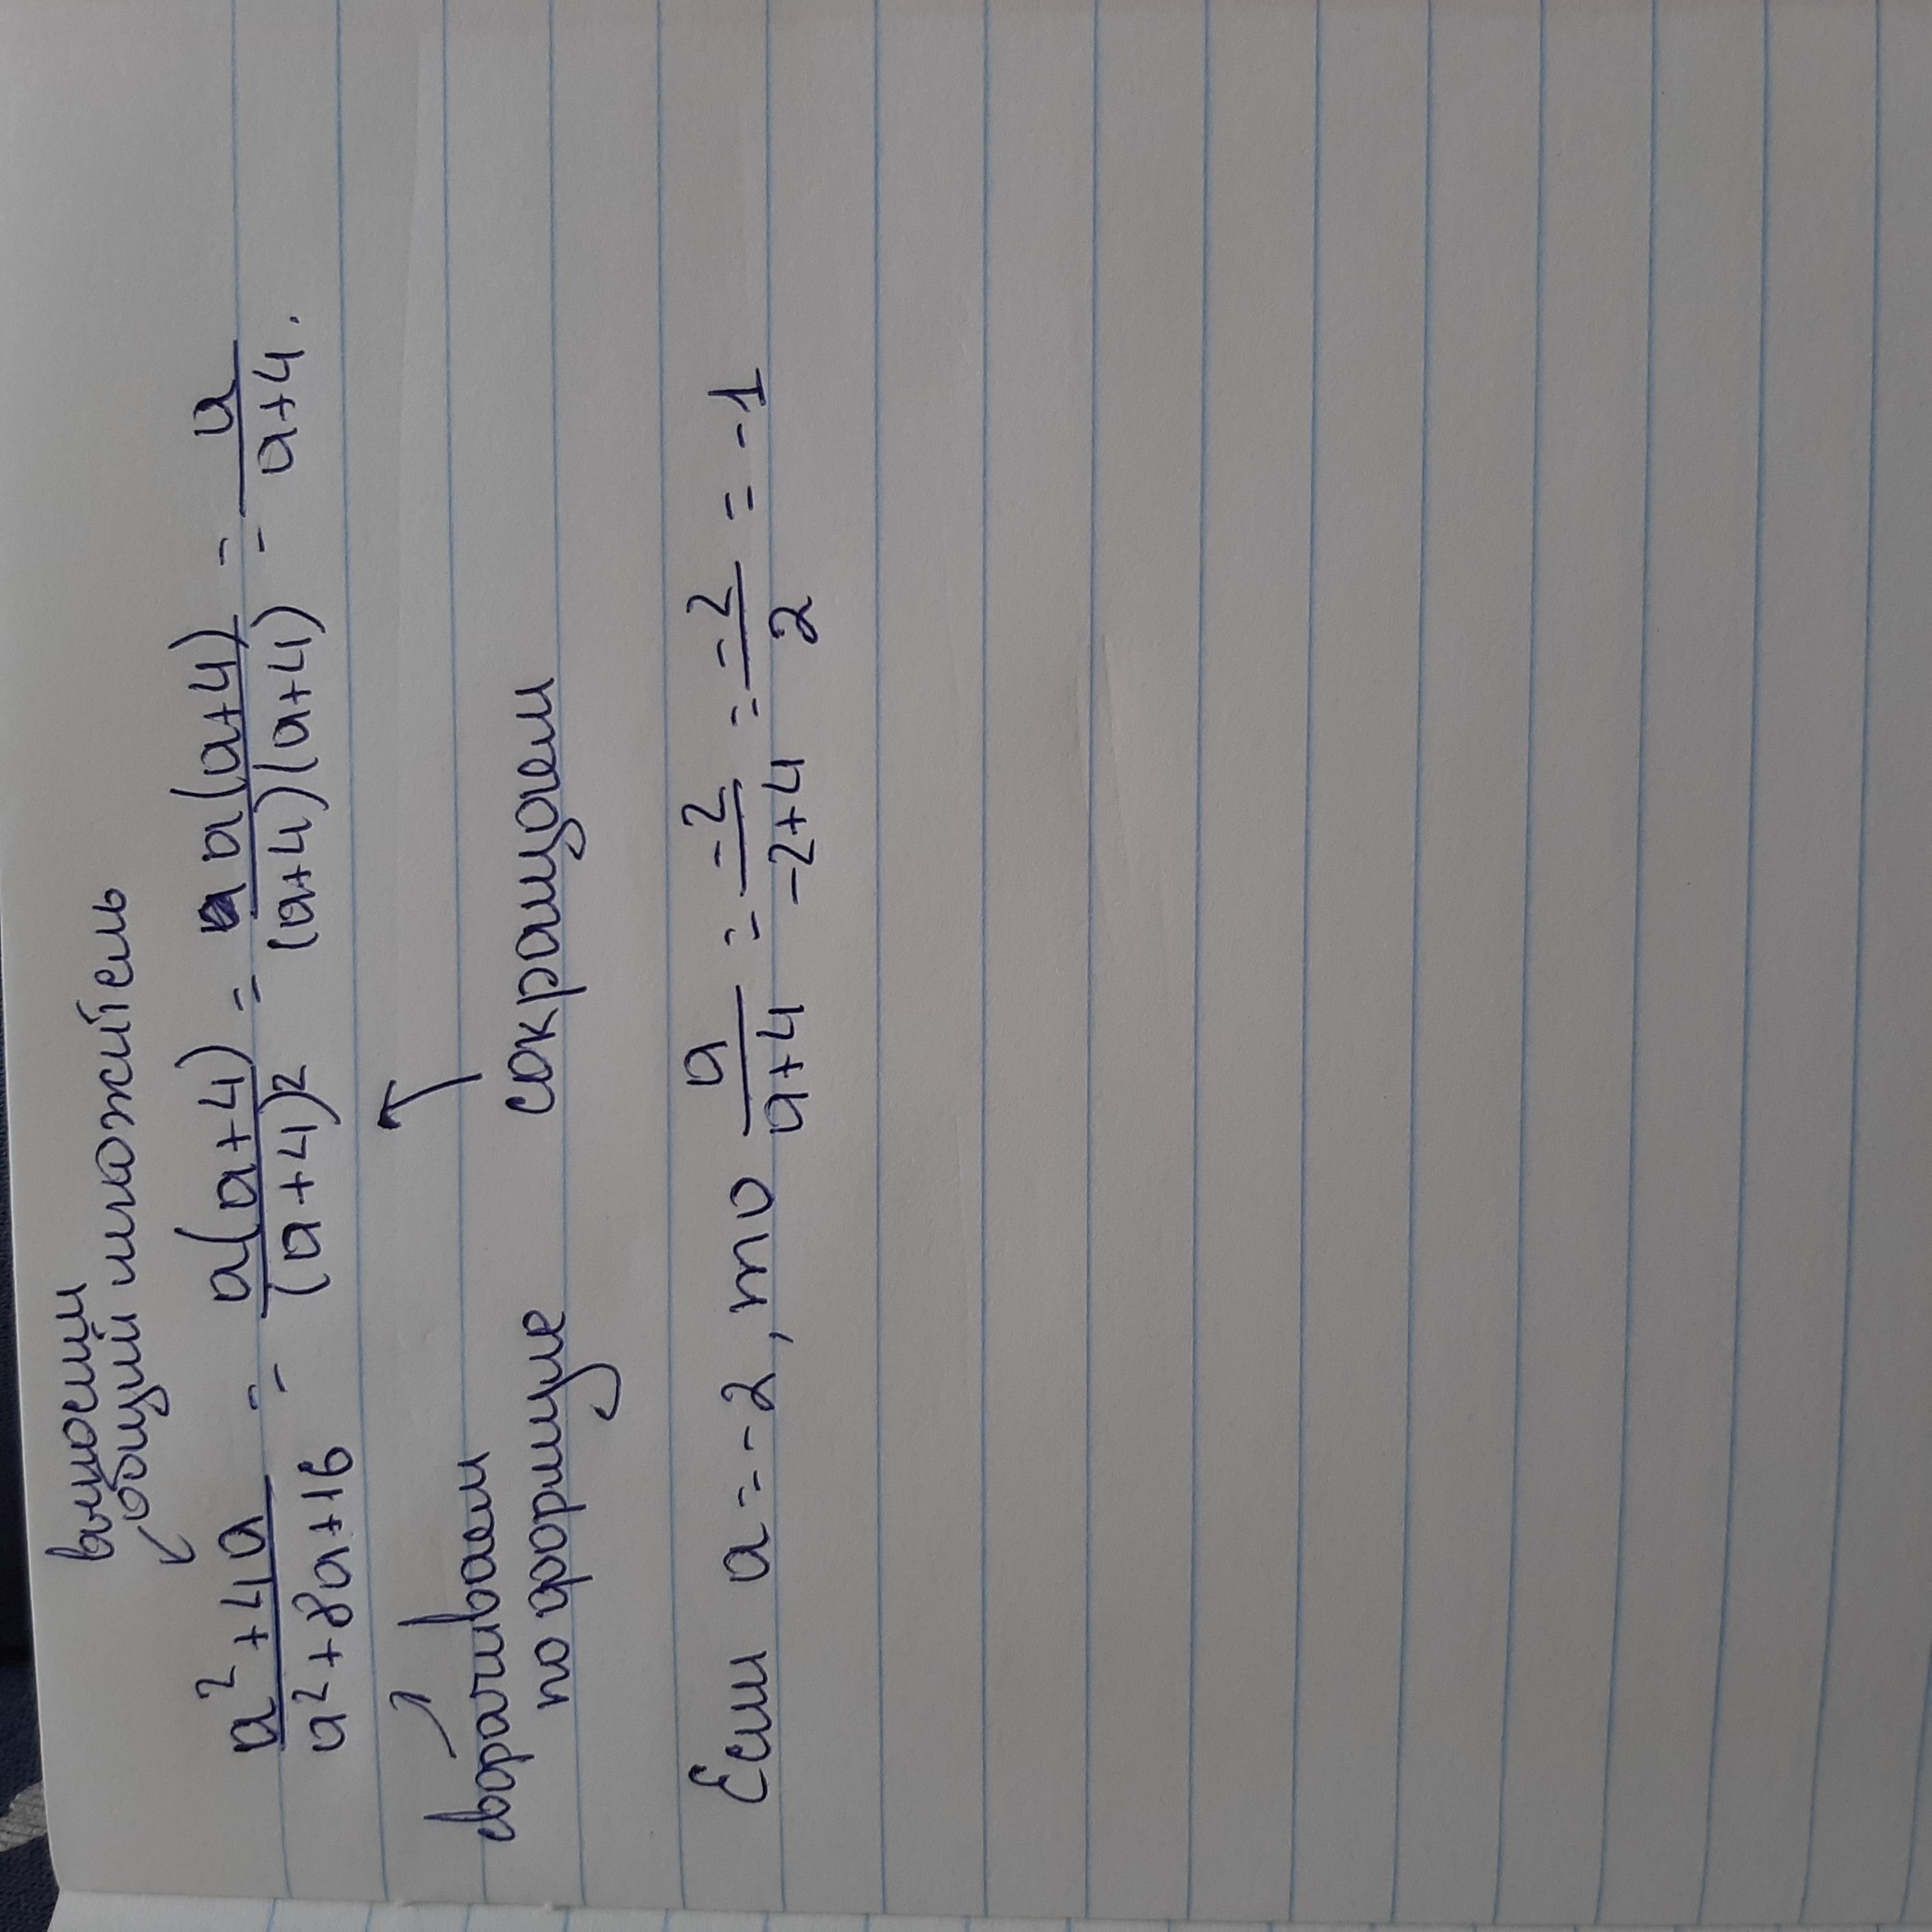 выносим
общий множитель
a²+4a / a²+8a+16 = a(a+4) / (a+4)² = a(a+4) / (a+4)(a+4) = a / a+4.
сворачиваем
по формуле сокращаем
Если a=-2, то a / a+4 = -2 / -2+4 = -2 / 2 = -1